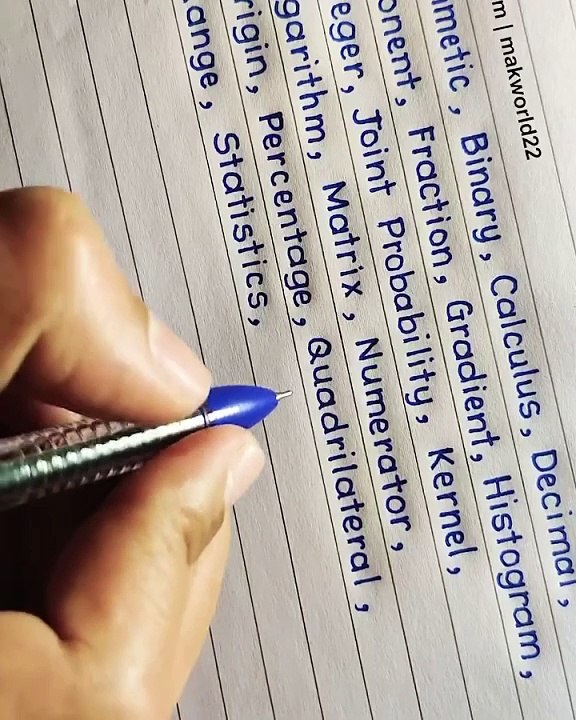 m | makworld22
metic, Binary, Calculus, Decimal,
onent, Fraction, Gradient, Histogram,
eger, Joint Probability, Kernel,
garithm, Matrix, Numerator,
rigin, Percentage, Quadrilateral,
ange, Statistics,